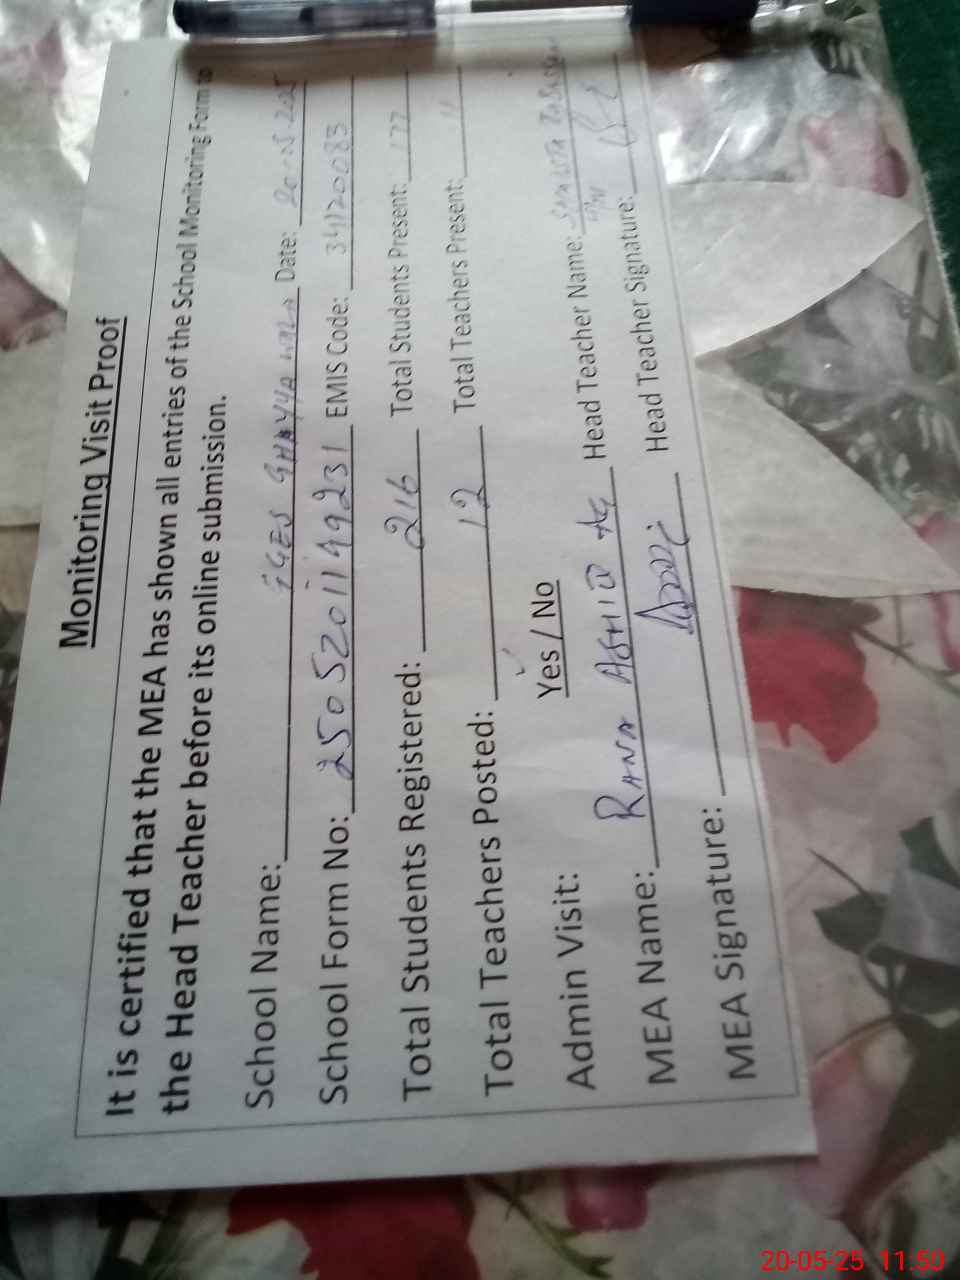 Monitoring Visit Proof
It is certified that the MEA has shown all entries of the School Monitoring Form to
the Head Teacher before its online submission.
School Name: GES Date: 20-05-2025
School Form No: 25052011199231 EMIS Code: 34120083
Total Students Registered: 216 Total Students Present: 177
Total Teachers Posted: 12 Total Teachers Present: 11
Admin Visit: Yes / No
MEA Name: RANA Head Teacher Name:
MEA Signature: Head Teacher Signature:
20-05-25 11:50